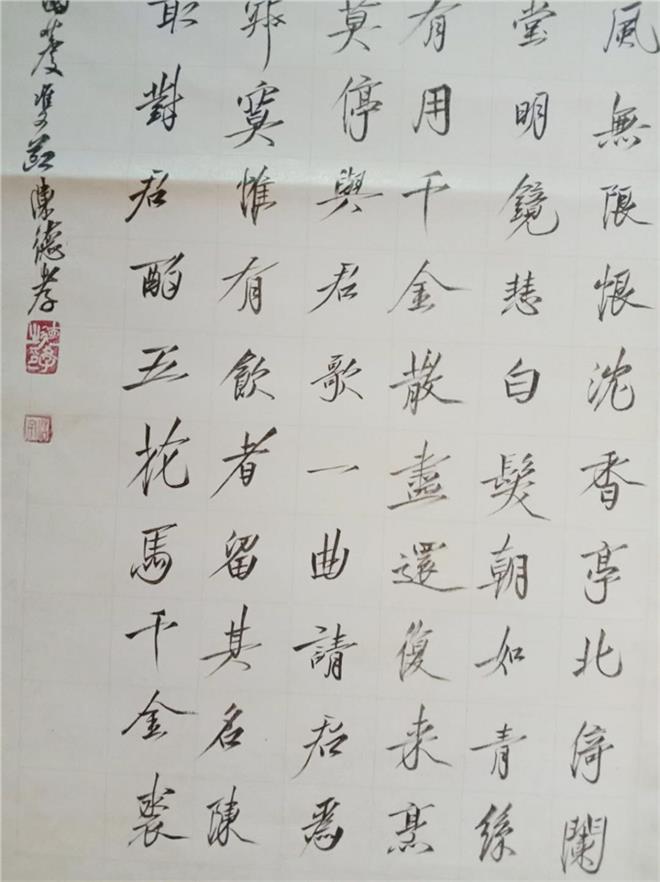 風無限恨沈香亭北倚闌
堂明鏡悲白髮朝如青絲
有用千金散盡還復来烹
莫停與君歌一曲請君為
寂寞惟有飲者留其名陳
取對君酌五花馬千金裘
陳德孝